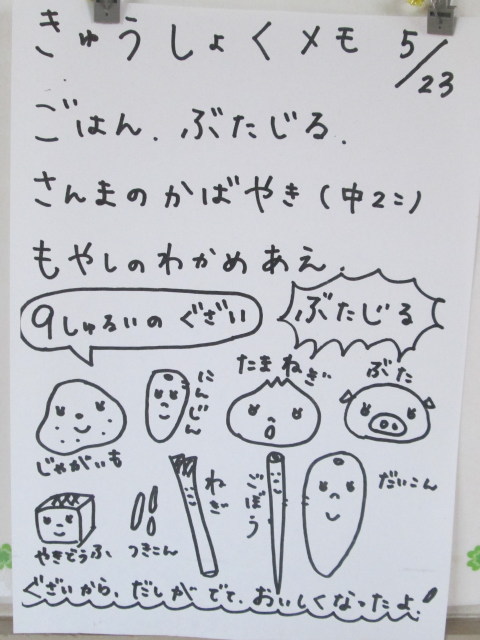 きゅうしょくメモ 5/23
ごはん. ぶたじる.
さんまのかばやき(中2コ)
もやしのわかめあえ.
9しゅるいの ぐざい
ぶたじる
じゃがいも
にんじん
たまねぎ
ぶた
やきどうふ
つきこん
ねぎ
ごぼう
だいこん
ぐざいから、だしがでて、おいしくなったよ!